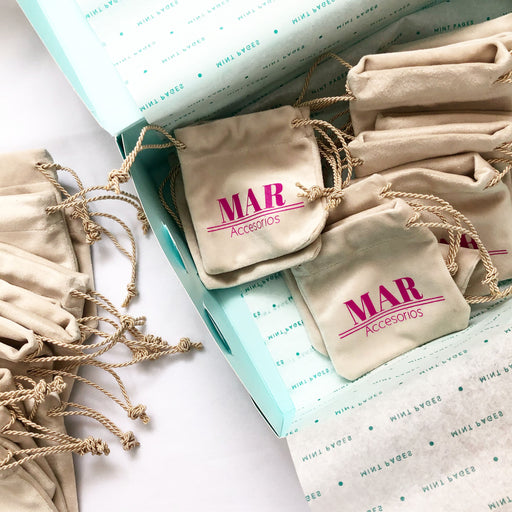 MAR
Accesorios
MAR
Accesorios
M
MINT PAGES
MINT PAGES
MINT PAGES
MINT PAGES
MINT PAGES
MINT PAGES